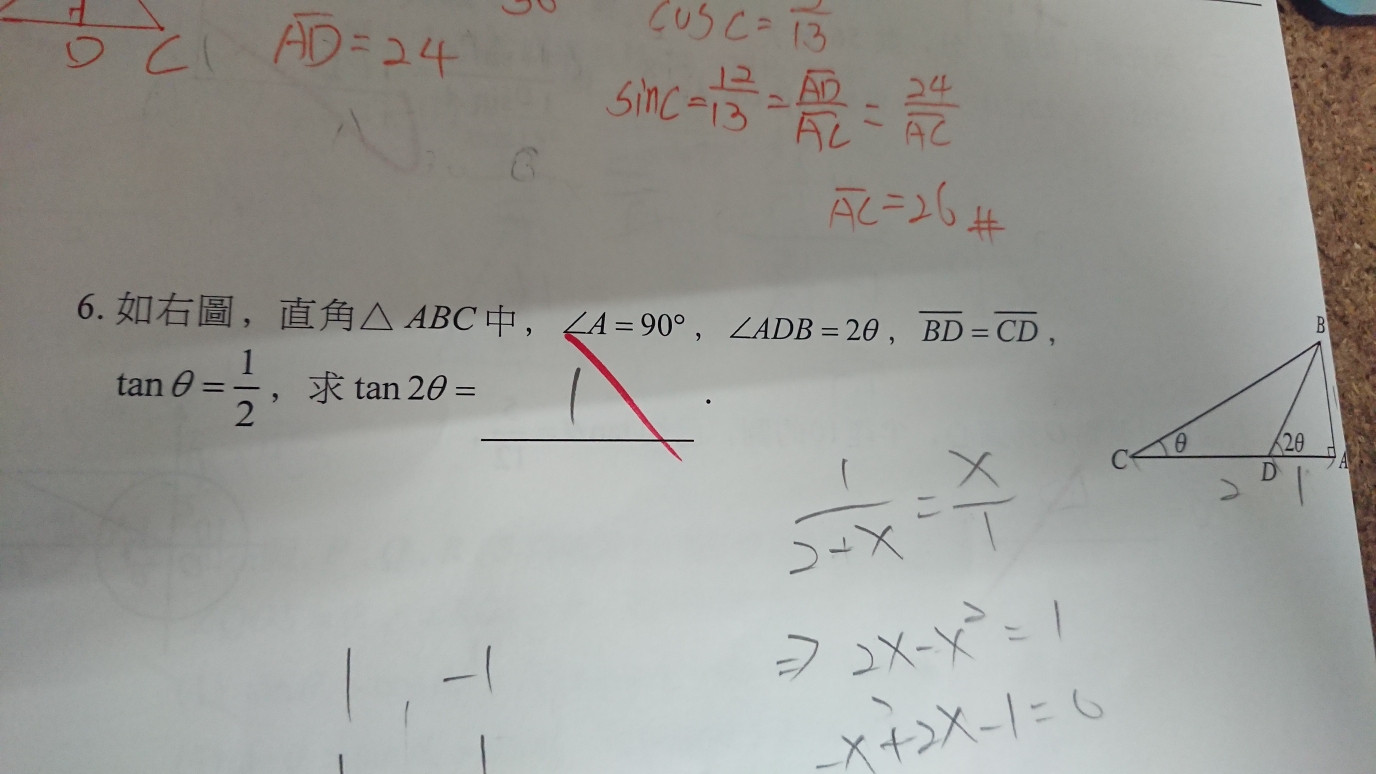 D C
AD = 24
cos C = /13
sinC = 12/13 = AD/AC = 24/AC
AC = 26 #
6. 如右圖，直角△ ABC 中，∠A = 90°，∠ADB = 2θ，BD = CD，
tan θ = 1/2，求 tan 2θ = 1 .
B
C θ 2θ A
D
2 1
1/2-x = x/1
⇒ 2x-x² = 1
-x²+2x-1=0
1 , -1
1 1